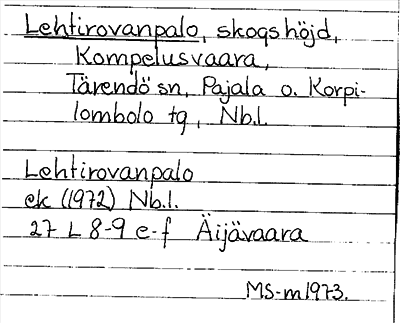 Lehtirovanpalo, skogshöjd,
Kompelusvaara,
Tärendö sn, Pajala o. Korpi-
lombolo tg, Nb.l.
Lehtirovanpalo
ek (1972) Nb.l.
27 L 8-9 e-f Äijävaara
MS-m1973.